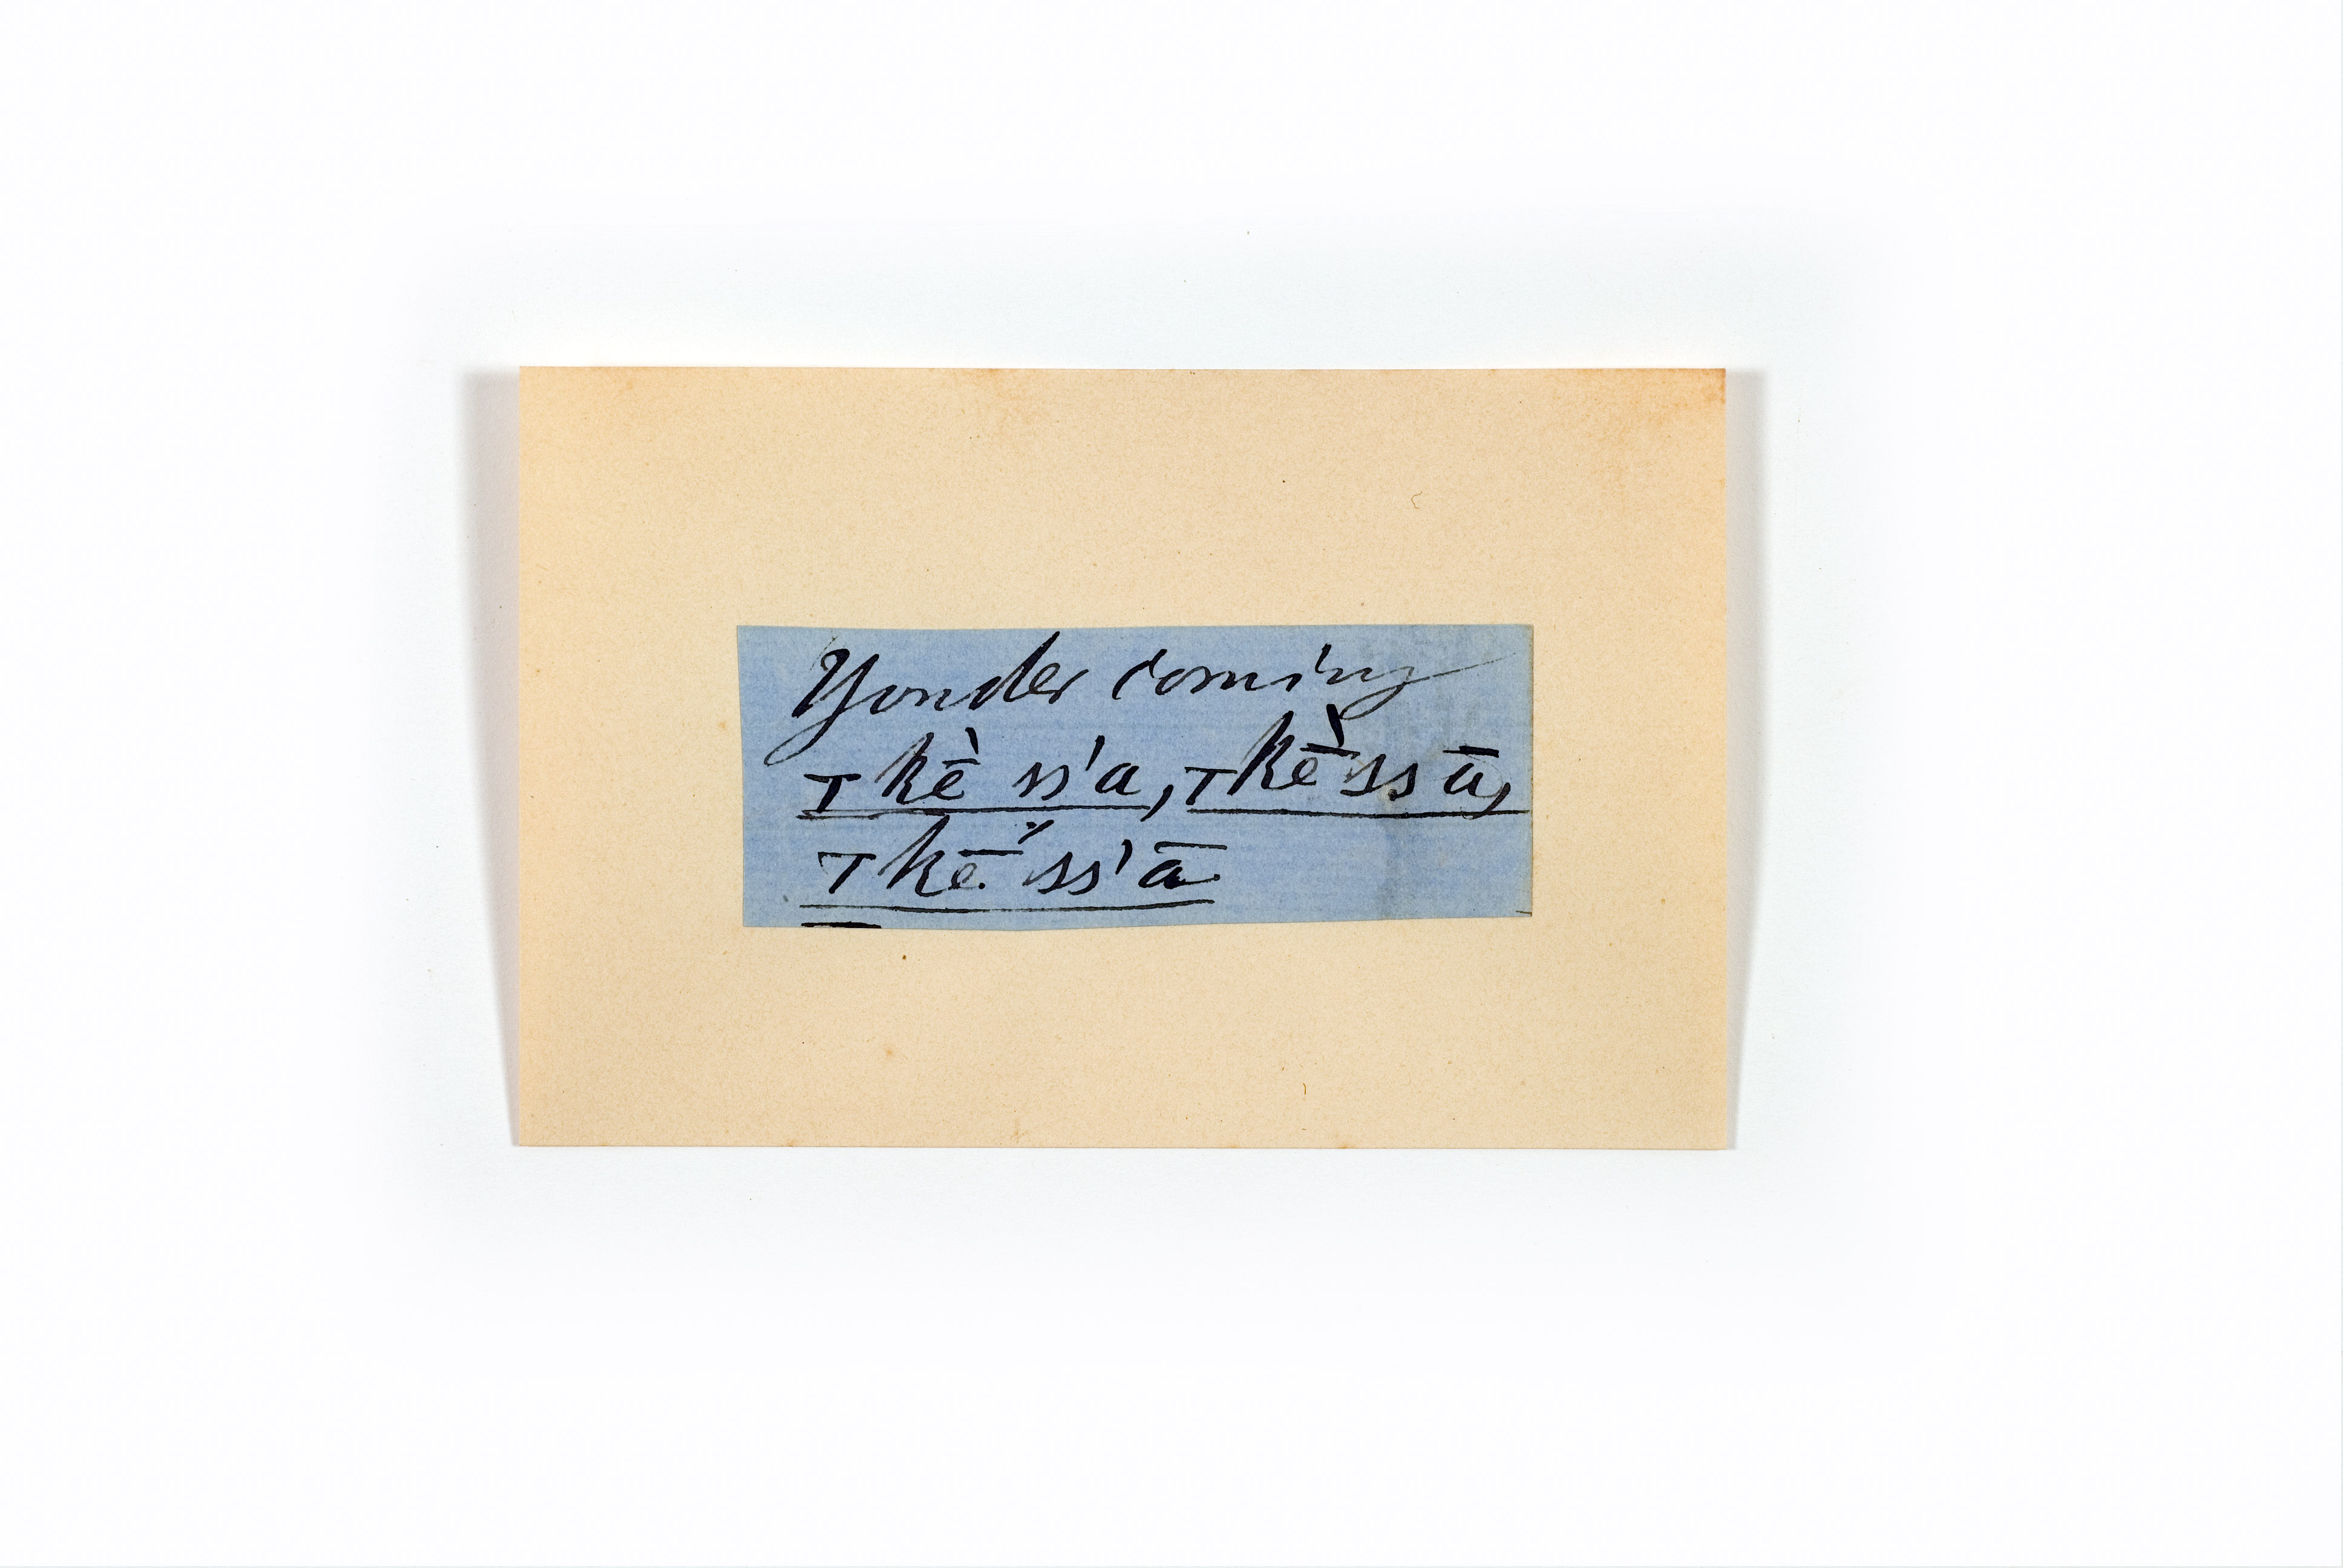 Yonder coming
Tkḕ ss'a, Tkḕssā,
Tkḕss'ā